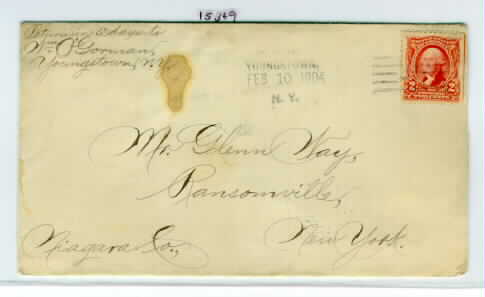 15349
Return in 5 days to
Wm O'Gorman,
Youngstown, N.Y.
YOUNGSTOWN,
FEB 10 1904
N.Y.
2 2
Mr. Glenn Way,
Ransomville,
Niagara Co., New York.